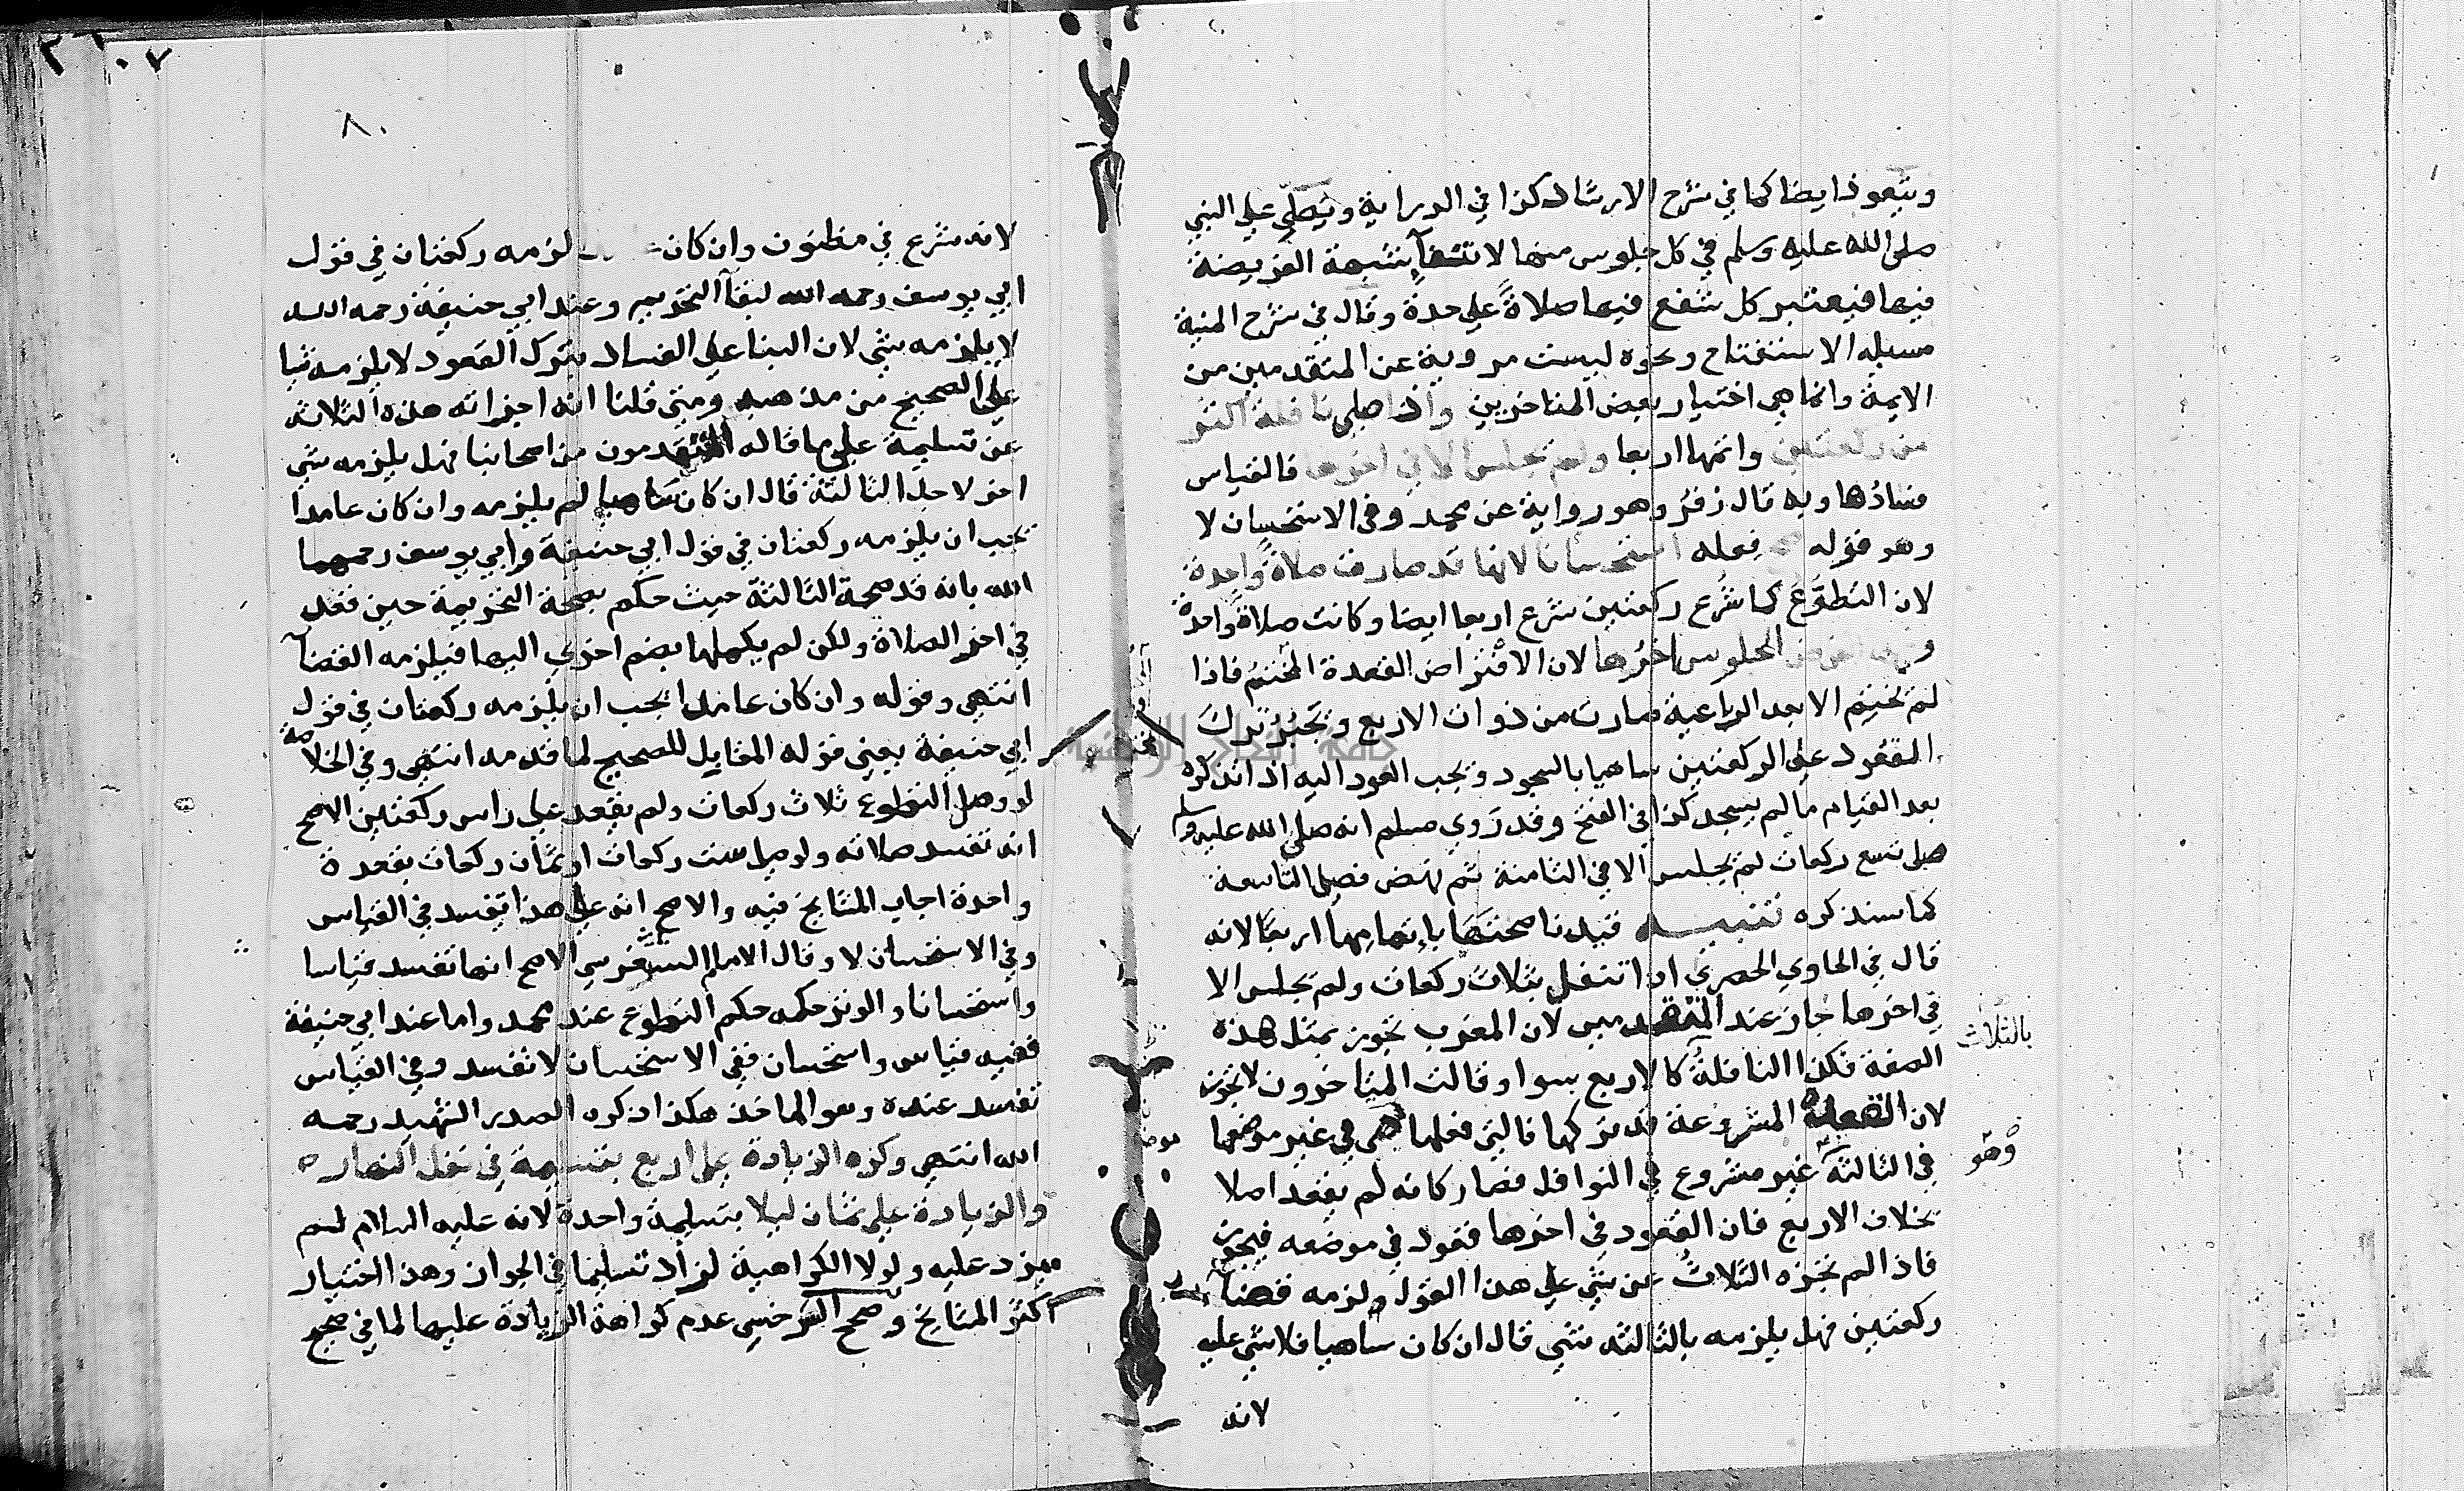 ويتعوذ ايضا كما في شرح الارشاد كذا في الدراية ويصلي علي النبي
صلى الله عليه وسلم في كل جلوس منها لانتفآ شبهة الفريضة
فيها فيعتبر كل شفع فيها صلاة علي حدة وقال في شرح المنية
مسيله الاستفتاح ونحوه ليست مروية عن المتقدمين من
الايمة وانما هي اختيار بعض المتاخرين واذا صلي نافلة اكثر
من ركعتين واتمها اربعا ولم يجلس الا في اخرها فالقياس
فسادها وبه قال زفر وهو رواية عن محمد وفي الاستحسان لا
وهو قوله صح فعله استحسانا لانها قد صارت صلاة واحدة
لان التطوع كما شرع ركعتين شرع اربعا ايضا وكانت صلاة واحدة
الجلوس اخرها لان الافتراض القعدة للختم فاذا
لم تختم الا بعد الرباعية صارت من ذوات الاربع ويجبر ترك
القعود علي الركعتين ساهيا بالسجود ويجب العود اليه اذا تذكره
بعد القيام ما لم يسجد كذا في الفتح وقد روي مسلم انه صلى الله عليه وسلم
صلى تسع ركعات لم يجلس الا في الثامنة ثم نهض فصلى التاسعة
كما سنذكره تنبيه قيدنا صحتها باتمامها اربعا لانه
قال في الحاوي الحصري اذا تنفل بثلاث ركعات ولم يجلس الا
في اخرها جاز عند المتقدمين لان المغرب تجوز بمثل هذه
بالثلاث
الصفة فكذا النافلة كالاربع سوا وقالت المتاخرون لا تجوز
لان القعدة المشروعة قد تركها فالتي فعلها هي في غير موضعها
وهو
في الثالثة غير مشروع في النوافل فصار كانه لم يقعد اصلا
بخلاف الاربع فان القعود في اخرها قعود في موضعه فيجوز
فاذا لم تجزه الثلاث عن شي علي هذا القول ولزمه قضآ
ركعتين فهل يلزمه بالثالثه شي قال ان كان ساهيا فلا شي عليه
لانه
٨٠
لانه شرع في مظنون وان كان لزمه ركعتان في قول
ابي يوسف رحمه الله لبقآ التحريم وعند ابي حنيفة رحمه الله
لا يلزمه شي لان البنا علي الفساد بترك القعود لا يلزمه شيا
علي الصحيح من مذهبه ومتي قلنا انه اجزاته هذه الثلاثة
عن تسليمة علي ما قاله المتقدمون من اصحابنا فهل يلزمه شي
اخر لاجل الثالثة قال ان كان ساهيا لم يلزمه وان كان عامدا
يجب ان يلزمه ركعتان في قول ابي حنيفة وابي يوسف رحمهما
الله بانه قد صحة الثالثة حيث حكم بصحة التحريمة حين قعد
في اخر الصلاة ولكن لم يكملها بضم اخري اليها فيلزمه القضآ
انتهي وقوله وان كان عامدا يجب ان يلزمه ركعتان في قول
ابي حنيفة يعني قوله المقابل للصحيح لما قدمه انتهي وفي الخلاصة
لو وصل التطوع ثلاث ركعات ولم يقعد علي راس ركعتين الاصح
انه تفسد صلاته ولو صلى ست ركعات او ثمان ركعات بقعدة
واحدة اجاب المشايخ فيه والاصح انه علي هذا تفسد في القياس
وفي الاستحسان لا وقال الامام السرخسي الاصح انها تفسد قياسا
واستحسانا والوتر حكمه حكم التطوع عند محمد واما عند ابي حنيفة
ففيه قياس واستحسان ففي الاستحسان لا تفسد وفي القياس
تفسد عنده وهو الماخذ هكذا ذكره الصدر الشهيد رحمه
الله انتهي وكره الزيادة علي اربع بتسليمة في نفل النهار
والزيادة علي ثمان ليلا بتسليمة واحدة لانه عليه السلام لم
يزد عليه ولولا الكراهية لزاد تعليما في الجواز وهذا اختيار
اكثر المشايخ وصحح السرخسي عدم كراهة الزيادة عليها لما في صحيح